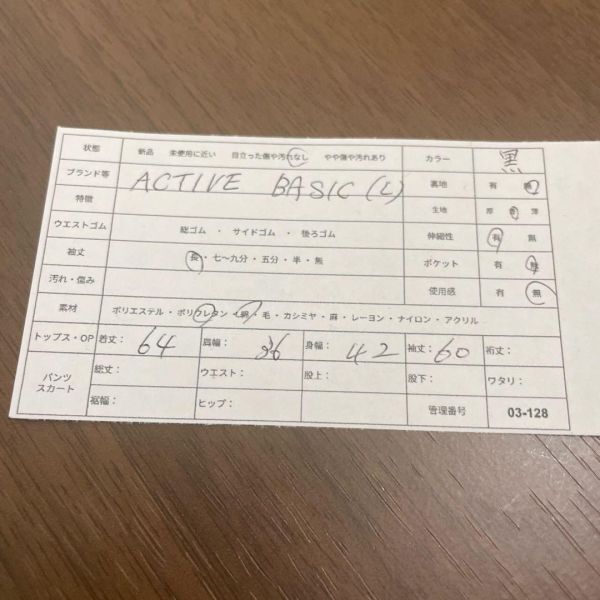 状態 新品 未使用に近い 目立った傷や汚れなし やや傷や汚れあり カラー 黒
ブランド等 ACTIVE BASIC (L) 裏地 有 無
特徴 生地 厚 普 薄
ウエストゴム 総ゴム ・ サイドゴム ・ 後ろゴム 伸縮性 有 無
袖丈 長・七〜九分・五分・半・無 ポケット 有 無
汚れ・傷み 使用感 有 無
素材 ポリエステル・ポリウレタン・綿・毛・カシミヤ・麻・レーヨン・ナイロン・アクリル
トップス・OP 着丈: 64 肩幅: 36 身幅: 42 袖丈: 60 裄丈:
パンツ スカート 総丈: ウエスト: 股上: 股下: ワタリ:
裾幅: ヒップ: 管理番号 03-128